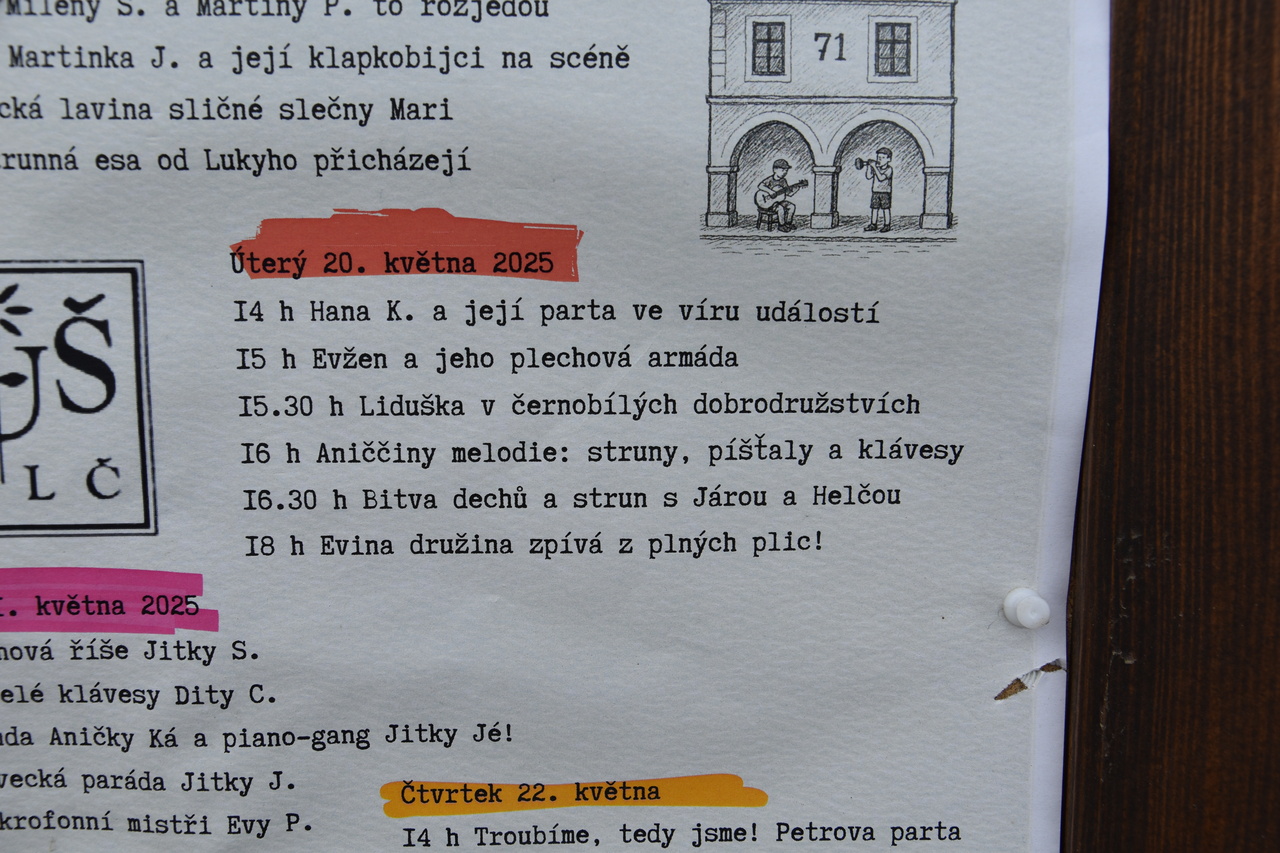 Mileny S. a Martiny P. to rozjedou
Martinka J. a její klapkobijci na scéně
lavina sličné slečny Mari
esa od Lukyho přicházejí
71
Úterý 20. května 2025
I4 h Hana K. a její parta ve víru událostí
I5 h Evžen a jeho plechová armáda
I5.30 h Liduška v černobílých dobrodružstvích
I6 h Aniččiny melodie: struny, píšťaly a klávesy
I6.30 h Bitva dechů a strun s Járou a Helčou
I8 h Evina družina zpívá z plných plic!
UŠ
L Č
I. května 2025
říše Jitky S.
klávesy Dity C.
Aničky Ká a piano-gang Jitky Jé!
paráda Jitky J.
mistři Evy P.
Čtvrtek 22. května
I4 h Troubíme, tedy jsme! Petrova parta